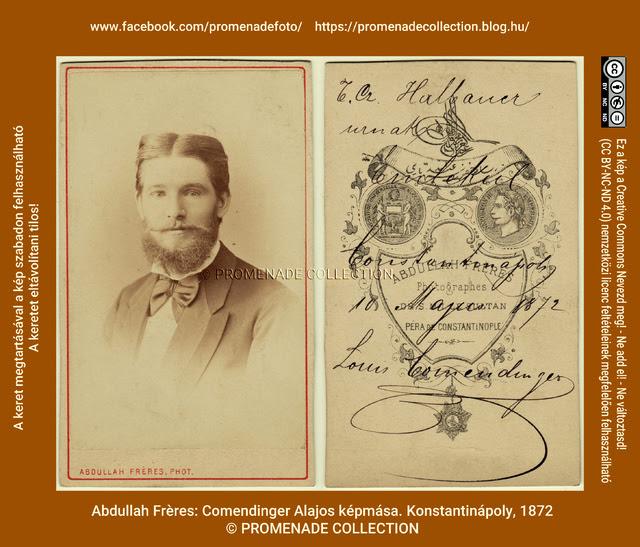 www.facebook.com/promenadefoto/ https://promenadecollection.blog.hu/
A keret megtartásával a kép szabadon felhasználható
A keretet eltávolítani tilos!
© PROMENADE COLLECTION
ABDULLAH FRÈRES, PHOT.
T. Cz. Halbauer
urnak
Emlékül
Constantinápoly
ABDULLAH FRÈRES
Photographes
PERA DE CONSTANTINOPLE
18 1872
Louis Comendinger
CC BY NC ND
Ez a kép a Creative Commons Nevezd meg! - Ne add el! - Ne változtasd!
(CC BY-NC-ND 4.0) nemzetközi licenc feltételeinek megfelelően felhasználható
Abdullah Frères: Comendinger Alajos képmása. Konstantinápoly, 1872
© PROMENADE COLLECTION